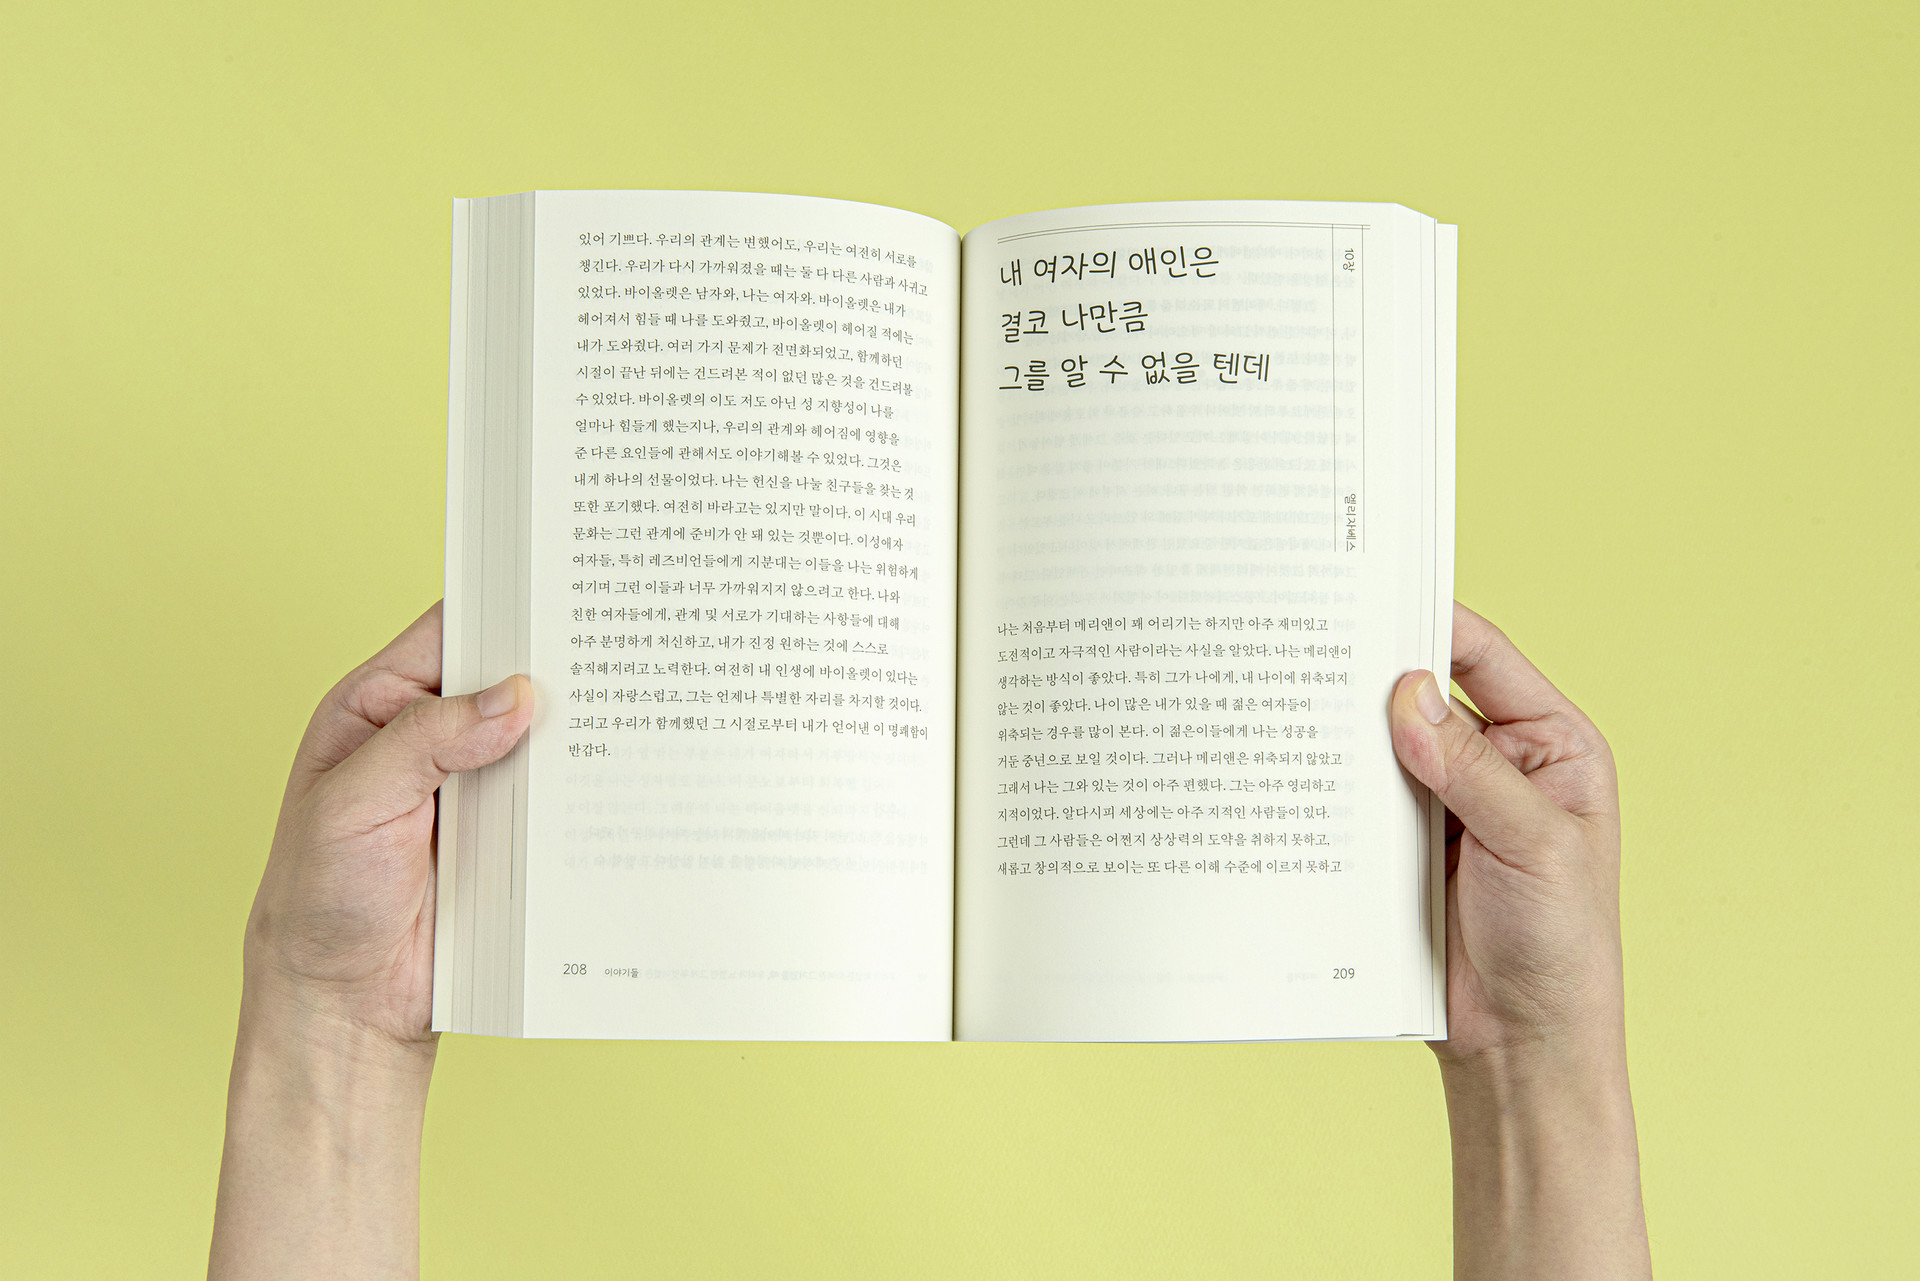 있어 기쁘다. 우리의 관계는 변했어도, 우리는 여전히 서로를
챙긴다. 우리가 다시 가까워졌을 때는 둘 다 다른 사람과 사귀고
있었다. 바이올렛은 남자와, 나는 여자와. 바이올렛은 내가
헤어져서 힘들 때 나를 도와줬고, 바이올렛이 헤어질 적에는
내가 도와줬다. 여러 가지 문제가 전면화되었고, 함께하던
시절이 끝난 뒤에는 건드려본 적이 없던 많은 것을 건드려볼
수 있었다. 바이올렛의 이도 저도 아닌 성 지향성이 나를
얼마나 힘들게 했는지나, 우리의 관계와 헤어짐에 영향을
준 다른 요인들에 관해서도 이야기해볼 수 있었다. 그것은
내게 하나의 선물이었다. 나는 헌신을 나눌 친구들을 찾는 것
또한 포기했다. 여전히 바라고는 있지만 말이다. 이 시대 우리
문화는 그런 관계에 준비가 안 돼 있는 것뿐이다. 이성애자
여자들, 특히 레즈비언들에게 지분대는 이들을 나는 위험하게
여기며 그런 이들과 너무 가까워지지 않으려고 한다. 나와
친한 여자들에게, 관계 및 서로가 기대하는 사항들에 대해
아주 분명하게 처신하고, 내가 진정 원하는 것에 스스로
솔직해지려고 노력한다. 여전히 내 인생에 바이올렛이 있다는
사실이 자랑스럽고, 그는 언제나 특별한 자리를 차지할 것이다.
그리고 우리가 함께했던 그 시절로부터 내가 얻어낸 이 명쾌함이
반갑다.
208 이야기들
내 여자의 애인은
결코 나만큼
그를 알 수 없을 텐데
10장
엘리자베스
나는 처음부터 메리앤이 꽤 어리기는 하지만 아주 재미있고
도전적이고 자극적인 사람이라는 사실을 알았다. 나는 메리앤이
생각하는 방식이 좋았다. 특히 그가 나에게, 내 나이에 위축되지
않는 것이 좋았다. 나이 많은 내가 있을 때 젊은 여자들이
위축되는 경우를 많이 본다. 이 젊은이들에게 나는 성공을
거둔 중년으로 보일 것이다. 그러나 메리앤은 위축되지 않았고
그래서 나는 그와 있는 것이 아주 편했다. 그는 아주 영리하고
지적이었다. 알다시피 세상에는 아주 지적인 사람들이 있다.
그런데 그 사람들은 어쩐지 상상력의 도약을 취하지 못하고,
새롭고 창의적으로 보이는 또 다른 이해 수준에 이르지 못하고
209